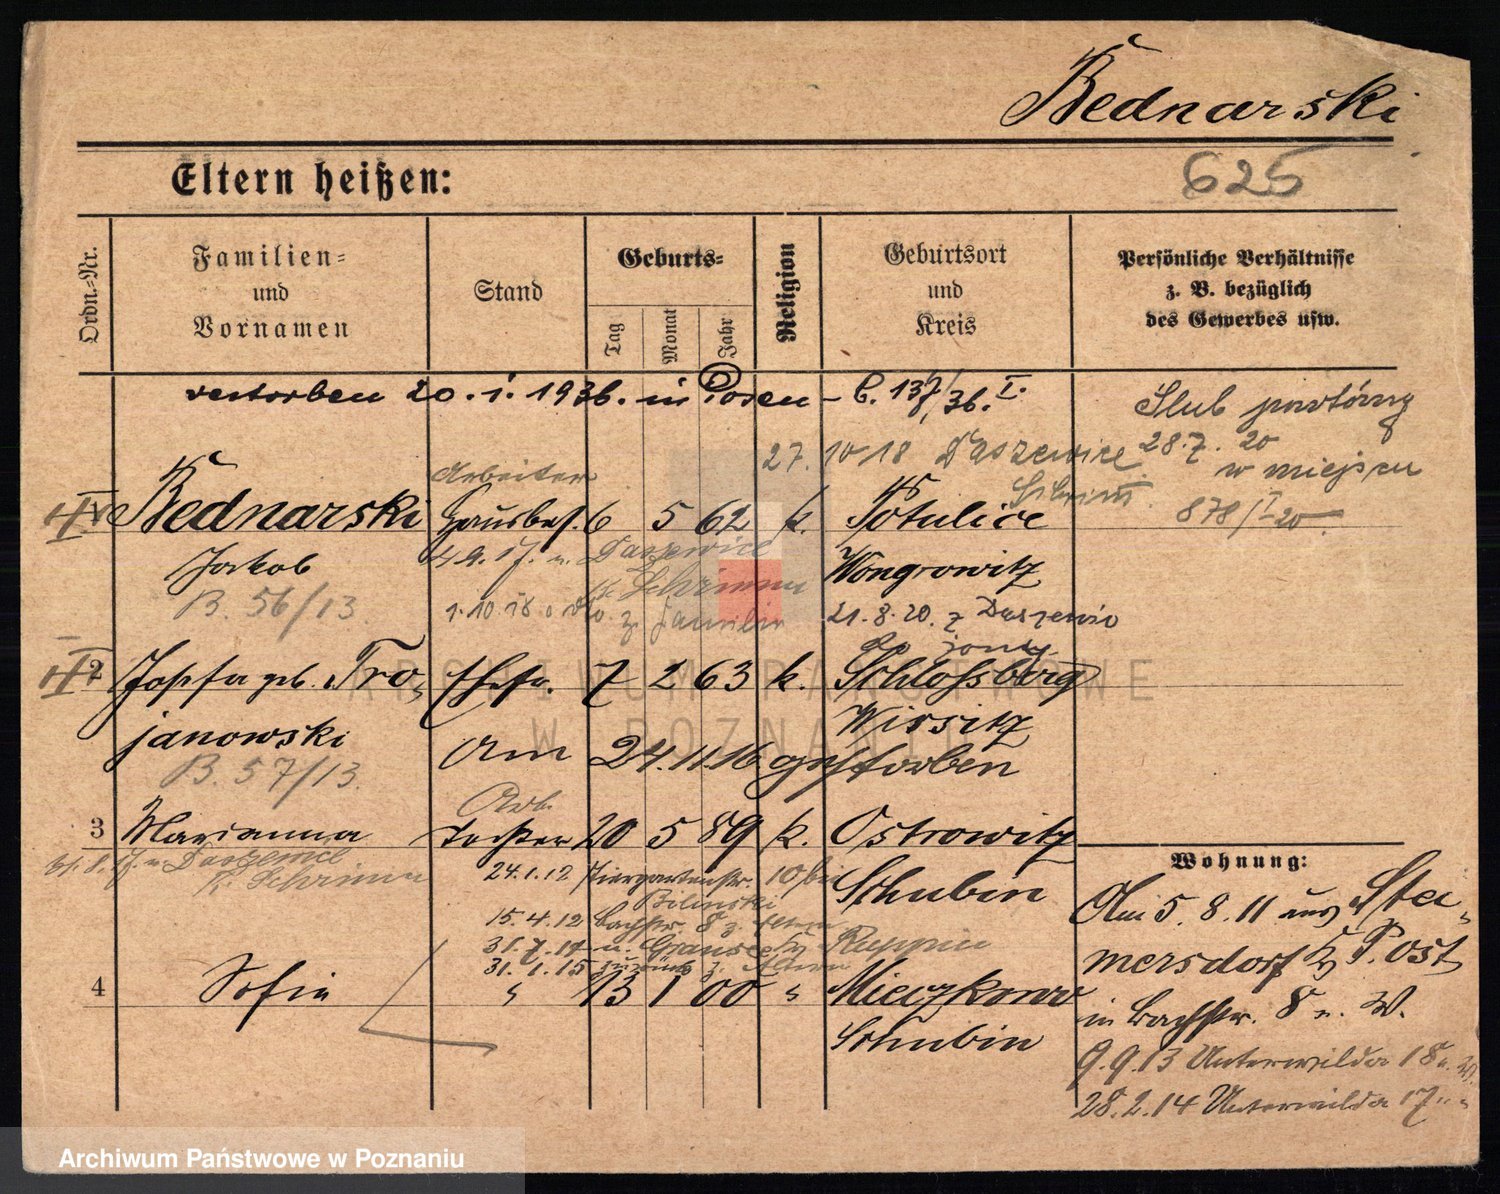 Bednarski
Eltern heißen:
625
Ordn.-Nr.
Familien-
und
Vornamen
Stand
Geburts-
Tag
Monat
Jahr
Religion
Geburtsort
und
Kreis
Persönliche Verhältnisse
z. B. bezüglich
des Gewerbes usw.
verstorben 20. 1. 1936. in Posen - C. 137/36. I.
Slub powtórny
27. 10 18 Daszewice 28. 7. 20
w miejscu
Arbeiter
Schrimm
878/I-20
1 Bednarski Hausbes. 6 5 62 k. Potulice
4. 9. 17. n. Daszewice
Jakob
K. Schrimm
Wongrowitz
B. 56/13
1. 10. 18 z. Familie
21. 8. 20. z Daszewic
żoną
2 Josefa geb. Tro- Ehefr. 7 2 63 k. Schlossberg
janowski
Wirsitz
Am 24. 11. 16 gestorben
B. 57/13.
Arb.
3 Marianna Tochter 20 5 89 k. Ostrowitz
8. 17. n. Daszewice
K. Schrimm
24. 1. 12 Tiergartenstr. 10 bei
Bilinski
Schubin
15. 4. 12 Bachstr. 8 z. Eltern
n. Gransee Kr Ruppin
31. 1. 15 zurück z. Eltern
4 Sofia " 13 1 00 " Mieczkowo
Schubin
Wohnung:
Am 5. 8. 11 aus Stei-
mersdorf K P. Ost
in Bachstr. 8 n. W.
9. 9. 13 Unterwilda 18 n. W.
28. 2. 14 Unterwilda 17 " "
ARCHIWUM PAŃSTWOWE
W POZNANIU
Archiwum Państwowe w Poznaniu